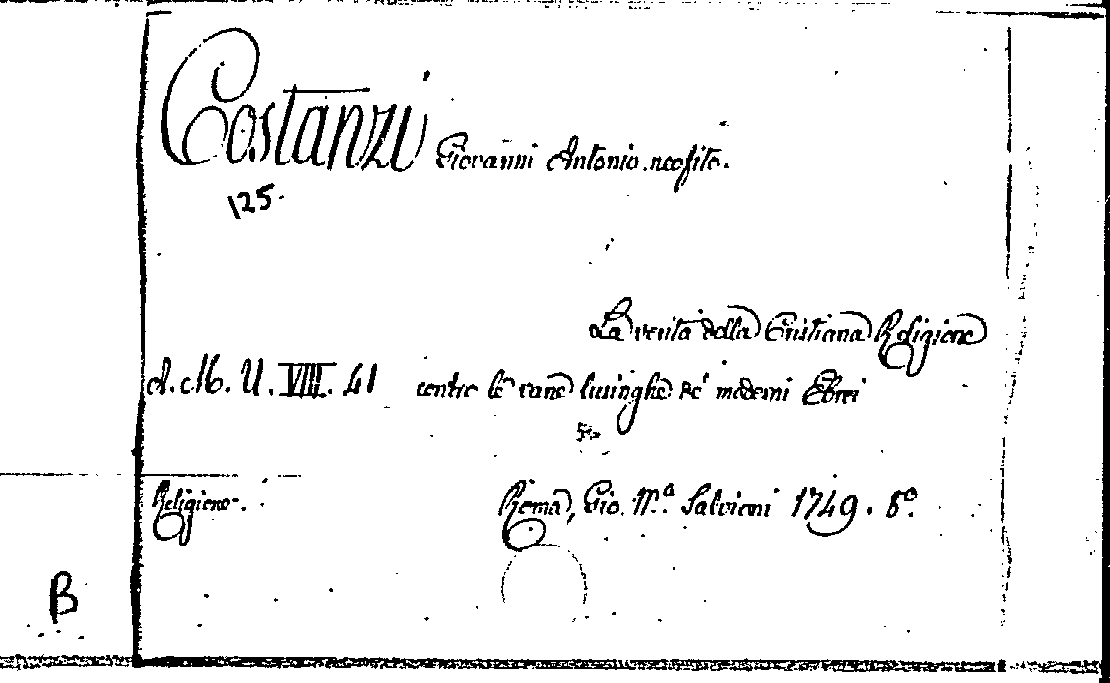 Costanzi Giovanni Antonio neofito.
125.
La verita della Cristiana Religione
A. M. U. VIII. 41 contro le vane lusinghe de' moderni Ebrei
Religione.
Roma, Gio. M.ª Salvioni 1749. 8º.
B